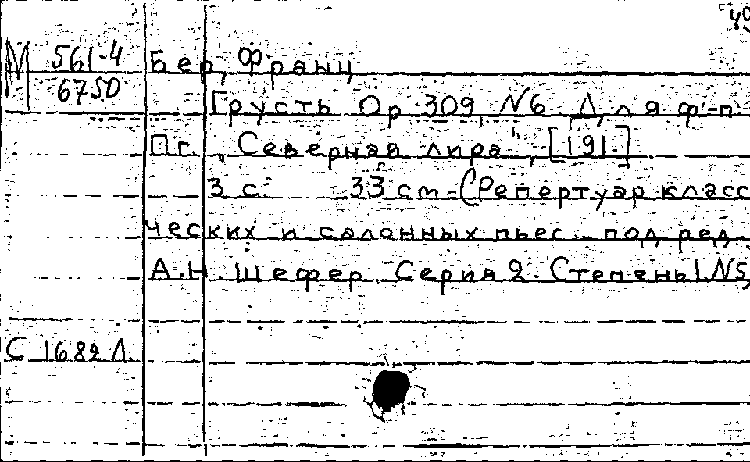 М 561-4
6750
Бер, Франц
Грусть Op 309, №6 Для ф-п.
Пг. "Северная лира", [191.]
3 с. 33 см-(Репертуар класс
ческих и салонных пьес под ред
А.Н. Шефер Серия 2. Степень I. №5,
С 1682 Л